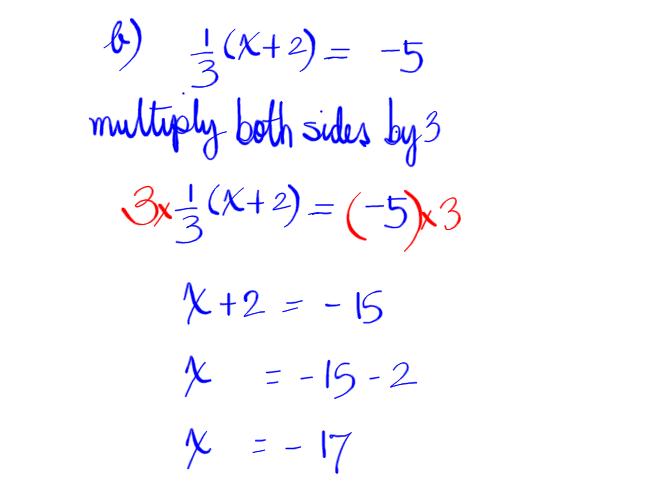 b) 1/3(x+2) = -5
multiply both sides by 3
3× 1/3(x+2) = (-5)×3
x+2 = -15
x = -15-2
x = -17